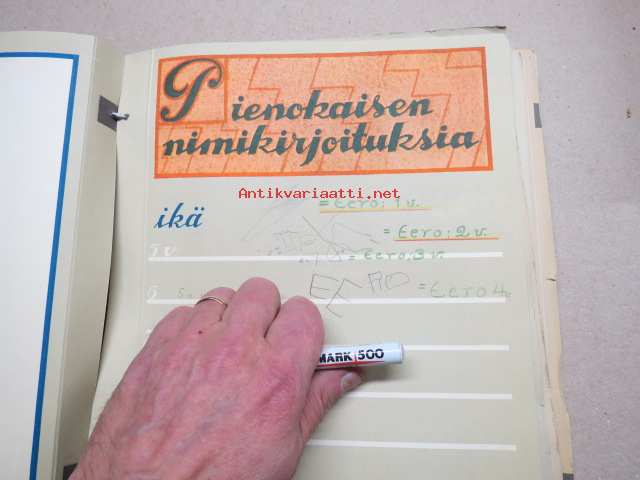 Pienokaisen
nimikirjoituksia
Antikvariaatti.net
= Eero: 1 v.
ikä
= Eero: 2 v.
= Eero: 3 v.
EERO = Eero 4
MARK 500